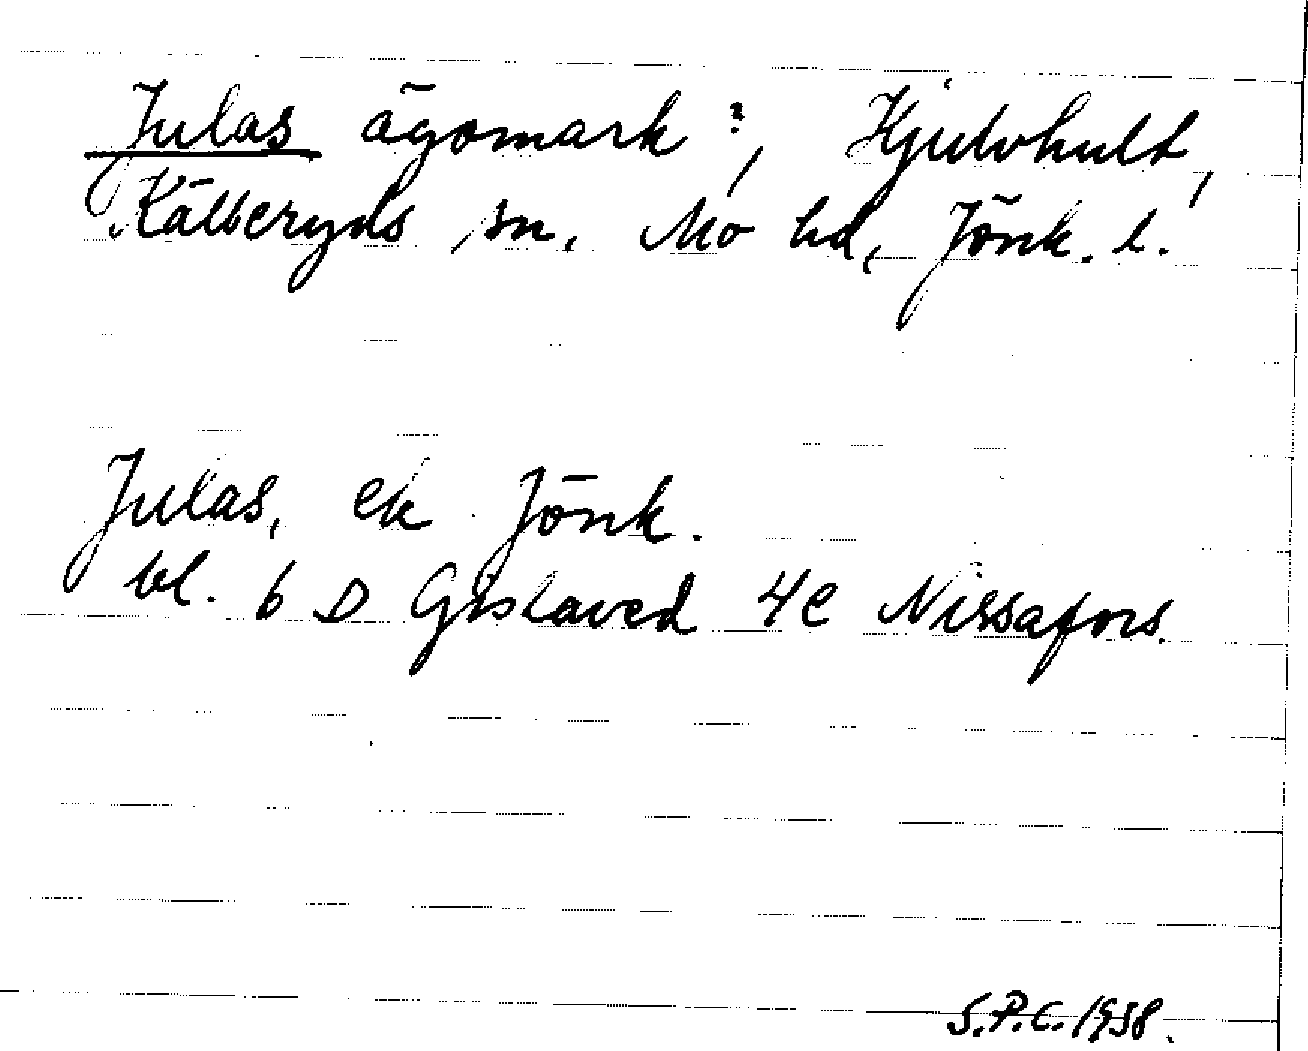 Julas ägomark ?, Hjulvhult,
Källeryds sn, Mo hd, Jönk. l.
Julas, ek Jönk.
bl. 6 D Gislaved 4e Nissafors.
S.P.C. 1958.